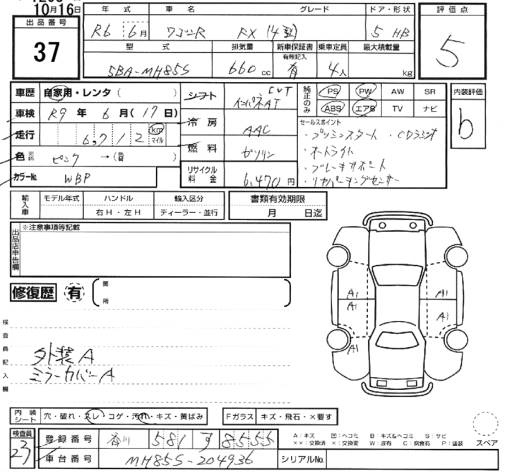 10月16日
出品番号
37
年式 車名 グレード ドア・形状
R6年6月 ワゴンR FX (4型) 5 HB
型式 排気量 新車保証書 乗車定員 最大積載量
有無記入
5BA-MH85S 660cc 有 4人 kg
評価点
5
内装評価
b
車歴 自家用・レンタ( )
車検 R9年6月(17日)
走行 6,712 km マイル
色 ピンク →(
カラーNo. WBP
シフト CVT インパネAT
冷房 AAC
燃料 ガソリン
リサイクル料金 6,470円
純正のみ
PS PW AW SR
ABS エアB TV ナビ
セールスポイント
・プッシュスタート ・CDラジオ
・オートライト
・ブレーキサポート
・リヤパーキングセンサー
輸入車 モデル年式 ハンドル 輸入区分
年 右H・左H ディーラー・並行
書類有効期限
月 日迄
出品店申告欄
※注意事項等記載
修復歴 有 箇所
検査員記入欄
外装A
ミラーカバーA
A1 A1
A1 A1
内装シート 穴・破れ・スレ・コゲ・汚れ・キズ・黄ばみ
Fガラス キズ・飛石・×要す
スペア
検査員
23
登録番号 香川 581 す 8555
車台番号 MH85S-204936
シリアルNo.
A:キズ 凹:ヘコミ B:キズ&ヘコミ S:サビ
××:交換済 ×:交換要 W:波有 C:腐食有 P:塗装